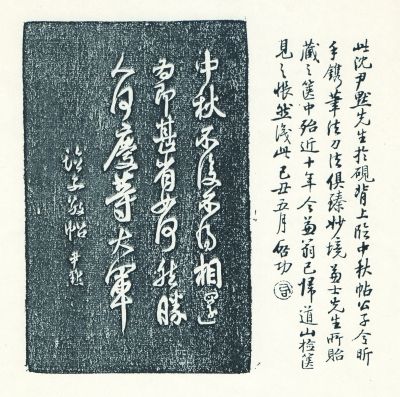 此沈尹默先生於硯背上臨中秋帖公子令昕
手鐫筆法刀法俱臻妙境兼士先生所貽
藏之篋中殆近十年今兼翁已歸道山檢篋
見之悵然識此己丑五月啟功
中秋不復不得相還
為即甚省如何然勝
人何慶等大軍
臨子敬帖 尹默